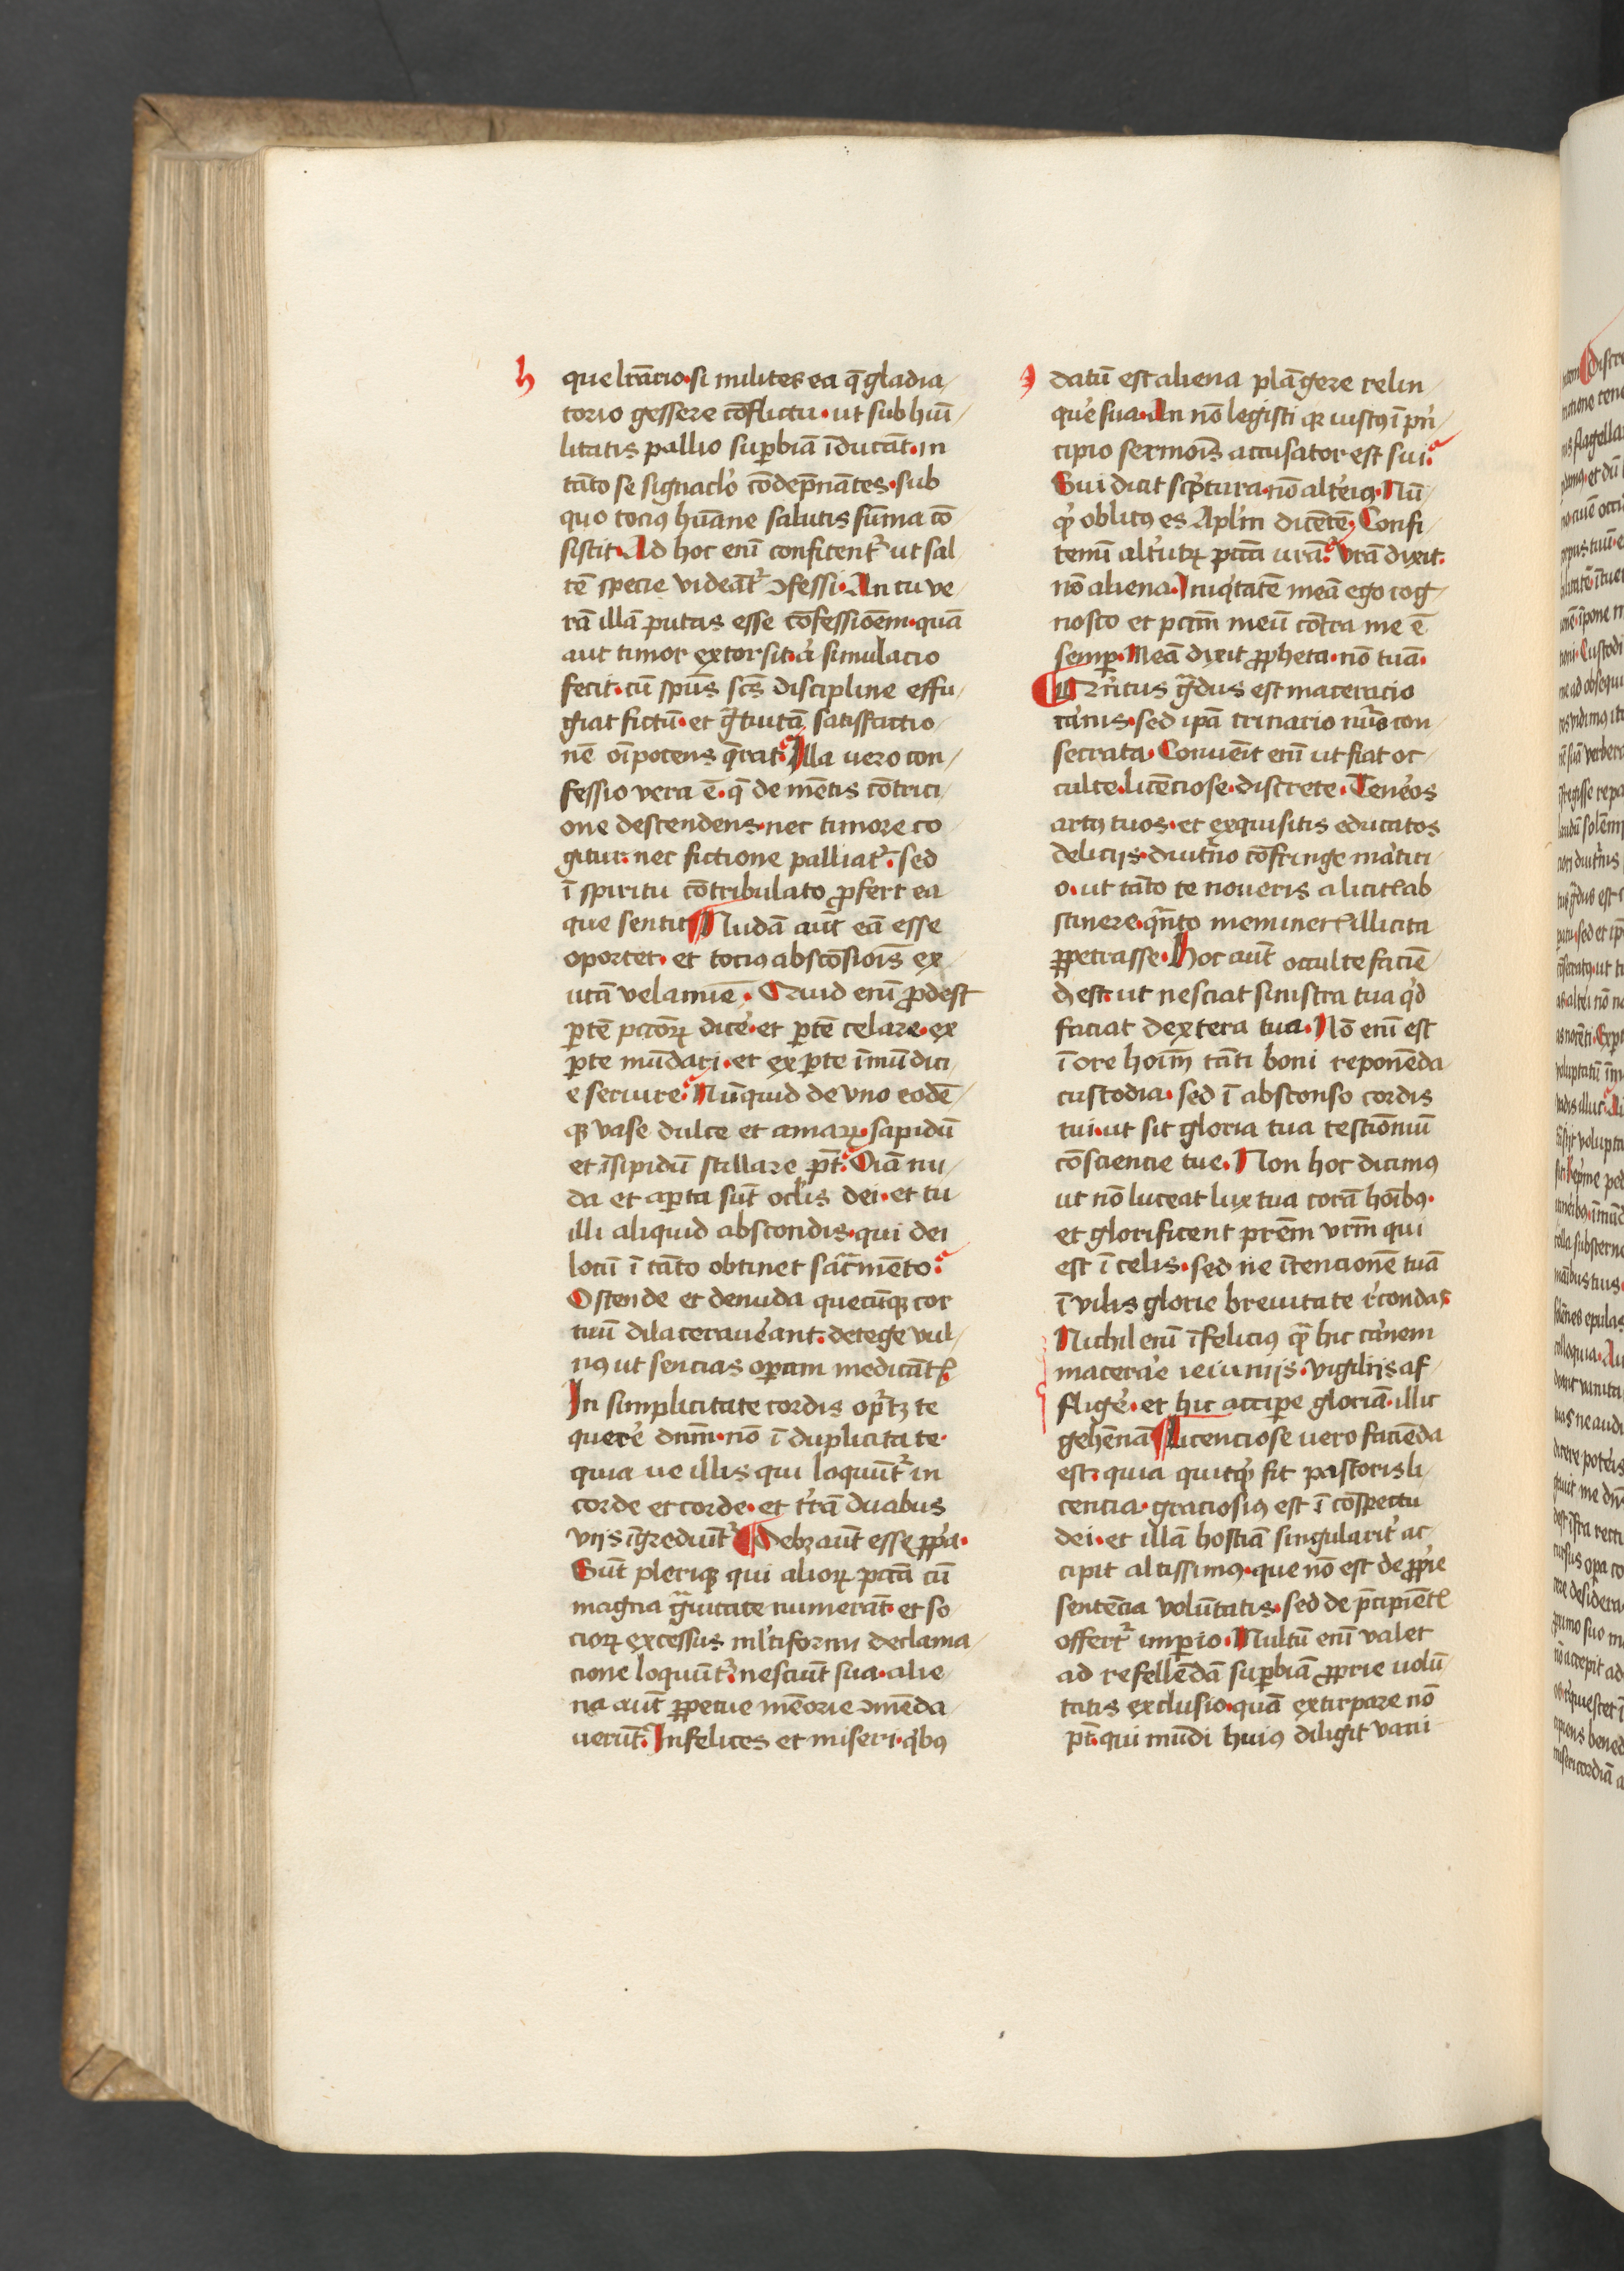 h
que lt̄acio·si milites ea q̄ gladia/
torio gessere cōflictu·ut sub hūi/
litatis pallio suꝑbiā īducāt·in
tāto se signaclo᷒ cōdep̄nātes·sub
quo tociꝰ hūane salutis sūma cō
sistit·Ad hoc eni᷒ confitent᷒ ut sal
tē specie videāt᷒ ꝯfessi·An tu ve/
rā illā putas esse cōfessiōem·quā
aut timor extorsit·a᷒ simulacio
fecit·cū spūs scs̄ discipline effu/
giat fictū·et g̃tuitā satisfactio/
nē oīpotens q̄rat·Illa vero con/
fessio vera ē·q̄ de mētis cōtrici/
one descendens·nec timore co
gitur·nec fictione palliat᷒·sed
ī spiritu cōtribulato ꝓfert ea
que sentit Nudā aūt eā esse
oportet·et tociꝰ abscōsiōis ex
utā velamīe·Quid eni᷒ ꝓdest
ꝑtē pctōꝝ dice᷒·et ꝑtē celare·ex
ꝑte mūdari·et ex ꝑte īmūdici
e seruire·Nūquid de vno eodē/
qꝫ vase dulce et amaꝝ·sapidū
et īsipidū stillare pt̄·Oīa nu/
da et aꝑta sūt oclis dei·et tu
illi aliquid abscondis·qui dei
locū ī tāto obtinet sacr̄mēto·
Ostende et denuda quecūqꝫ cor
tuū dilacerauerant·detege vul/
nꝰ ut sencias oꝑam medicātꝭ
In simplicitate cordis op᷒tꝫ te
quere᷒ dnm̄·nō ī duplicitate·
quia ue illis qui loquūt᷒ in
corde et corde·et tr̄ā duabus
vijs īgrediūt᷒ Debꝫ aūt esse ꝓpa᷒·
Sūt pleriqꝫ qui alioꝝ pctā cū
magna g̃uitate numerāt·et so
cioꝝ excessus ml᷒tiformi declama/
cione loquūt᷒·nesciūt sua·alie/
na aūt ꝑpetue mēorie ꝯmēda/
uerūt·Infelices et miseri·q᷒bꝰ
datū est aliena plāgere relin/
que᷒ sua·An nō legisti qꝫ iustꝰ ī pri᷒/
cipio sermōis accusator est sui·
Sui dicit sc᷒ptura·nō alteiꝰ·Nū/
q᷒ oblitꝰ es Apl᷒m dicētē·Confi/
temi᷒ alt᷒utꝝ pctā vrā·Vrā dixit·
nō aliena·Iniq᷒tatē meā ego cog/
nosco et pctm̄ meū cōtra me ē
semꝑ·Meā dixit ꝓpheta·nō tuā·
Tr̄cius g̃dus est maceracio
carnis·sed ipā trinario nūo con
secrata·Conueīt eni᷒ ut fiat oc/
culte·licēciose·discrete·Tene᷒os
artꝰ tuos·et exquisitis educatos
delicijs·diut᷒no cōfringe mar᷒tiri/
o·ut tāto te noueris a licitꝭ ab
stinere·qn̄to meminerꝭ illicita
ꝑpetrasse·Hoc aūt occulte faciē
d᷒ est·ut nesciat sinistra tua q᷒d
faciat dextera tua·Nō eni᷒ est
ī ore hoīm tāti boni reponēda
custodia·sed ī absconso cordis
tui·ut sit gloria tua testiōniū
cōsciencie tue·Non hoc dicimꝰ
ut nō luceat lux tua corā hoībꝰ·
et glorificent prēm vrm̄ qui
est ī celis·sed ne ītencionē tuā
ī vilis glorie breuitate r᷒condas·
Nichil eni᷒ īfeliciꝰ q̃ hic carnem
macera᷒e ieiunijs·vigilijs af/
flige᷒·et hic acciꝑe gloriā·illic
gehēnā Licenciose uero faciēda
est·quia quitq᷒ fit pastoris li/
cencia·graciosiꝰ est ī cōspectu
dei·et illā hostiā singularit᷒ ac/
cipit altissimꝰ·que nō est de ꝓprie
sentēcia volūtatis·sed de p̄cipiētꝭ
offert᷒ imꝑio·Multū eni᷒ valet
ad refellēdā suꝑbiā ꝓprie uolū/
tatis exclusio·quā extirpare nō
pt̄·qui mūdi huiꝰ diligit vani